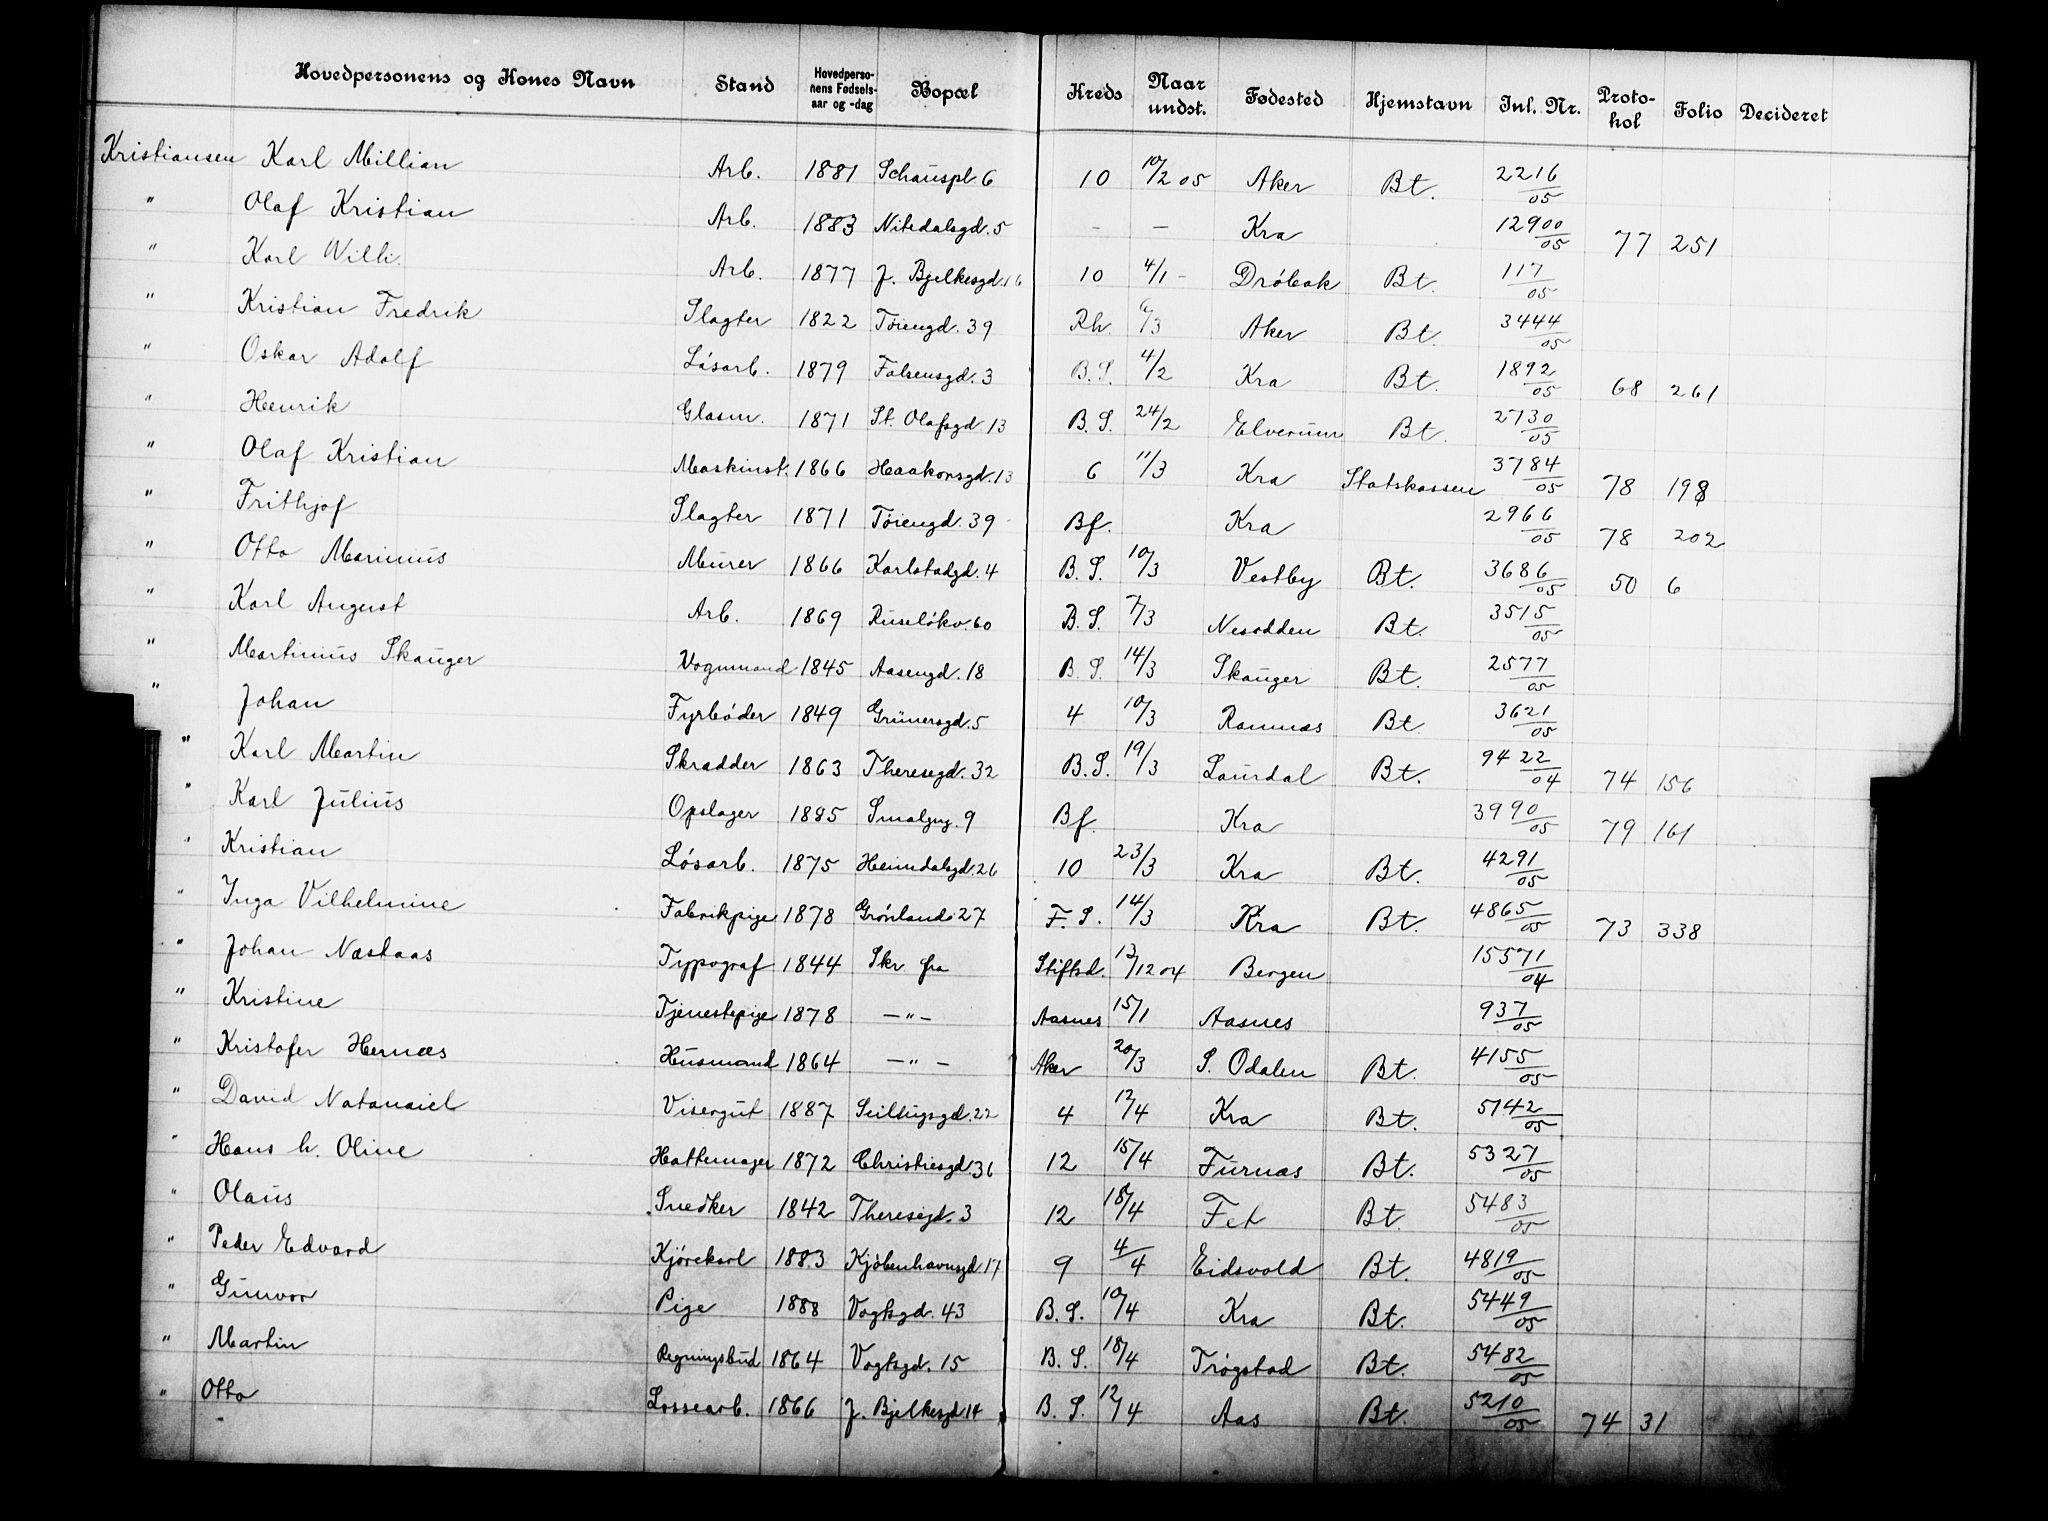 Hovedpersonens og Kones Navn Stand Hovedperso-nens Fødsels-aar og -dag Bopæl Kreds Naar undst. Fødested Hjemstavn Inl. Nr. Proto-kol Folio Decideret
Kristiansen Karl Millian Arb. 1881 Schauspl. 6 10 10/2 05 Aker Bt. 2216/05
" Olaf Kristian Arb. 1883 Nitedalsgd. 5 - - Kra 12900/05 77 251
" Karl Wilh. Arb. 1877 J. Bjelkesgd. 16 10 4/1 - Drøbak Bt. 117/05
" Kristian Fredrik Slagter 1822 Tøiengd. 39 Rh. 6/3 Aker Bt. 3444/05
" Oskar Adolf Løsarb. 1879 Falsensgd. 3 B.S. 4/2 Kra Bt. 1892/05 68 261
" Henrik Glasm. 1871 St. Olafsgd. 13 B.S. 24/2 Elverum Bt. 2730/05
" Olaf Kristian Maskinst. 1866 Haakonsgd. 13 6 11/3 Kra Statskassen 3784/05 78 198
" Frithjof Slagter 1871 Tøiengd. 39 Bf. Kra 2966/05 78 202
" Otto Marinius Murer 1866 Karlstadgd. 4 B.S. 10/3 Vestby Bt. 3686/05 50 6
" Karl August Arb. 1869 Ruseløkv. 60 B.S. 7/3 Nesodden Bt. 3515/05
" Martinius Skauger Vognmand 1845 Aasengd. 18 B.S. 14/3 Skauger Bt. 2577/05
" Johan Fyrbøder 1849 Grünersgd. 5 4 10/3 Ramnæs Bt. 3621/05
" Karl Martin Skrædder 1863 Theresegd. 32 B.S. 19/3 Laurdal Bt. 9422/04 74 156
" Karl Julius Opslager 1885 Smalgng. 9 Bf. Kra 3990/05 79 161
" Kristian Løsarb. 1875 Heimdalsgd. 26 10 23/3 Kra Bt. 4291/05
" Inga Vilhelmine Fabrikpige 1878 Grønland 27 F.S. 14/3 Kra Bt. 4865/05 73 338
" Johan Næstaas Typograf 1844 Skr fra Stiftsd. 13/12 04 Bergen 15571/04
" Kristine Tjenestepige 1878 -"- Aasnes 15/1 Aasnes 937/05
" Kristofer Hernæs Husmand 1864 -"- Aker 20/3 S. Odalen Bt. 4155/05
" David Natanaiel Visergut 1887 Seildugsgd. 22 4 12/4 Kra Bt. 5142/05
" Hans h. Oline Hattemager 1872 Christiesgd. 36 12 15/4 Furnæs Bt. 5327/05
" Olaus Snedker 1842 Theresegd. 3 12 18/4 Fet Bt. 5483/05
" Peder Edvard Kjørekarl 1883 Kjøbenhavnsgd. 17 9 4/4 Eidsvold Bt. 4819/05
" Gunvor Pige 1888 Vogtsgd. 43 B.S. 10/4 Kra Bt. 5449/05
" Martin Regningsbud 1864 Vogtsgd. 15 B.S. 18/4 Trøgstad Bt. 5482/05
" Otto Lossearb. 1866 J. Bjelkesgd. 14 B.S. 12/4 Aas Bt. 5210/05 74 31